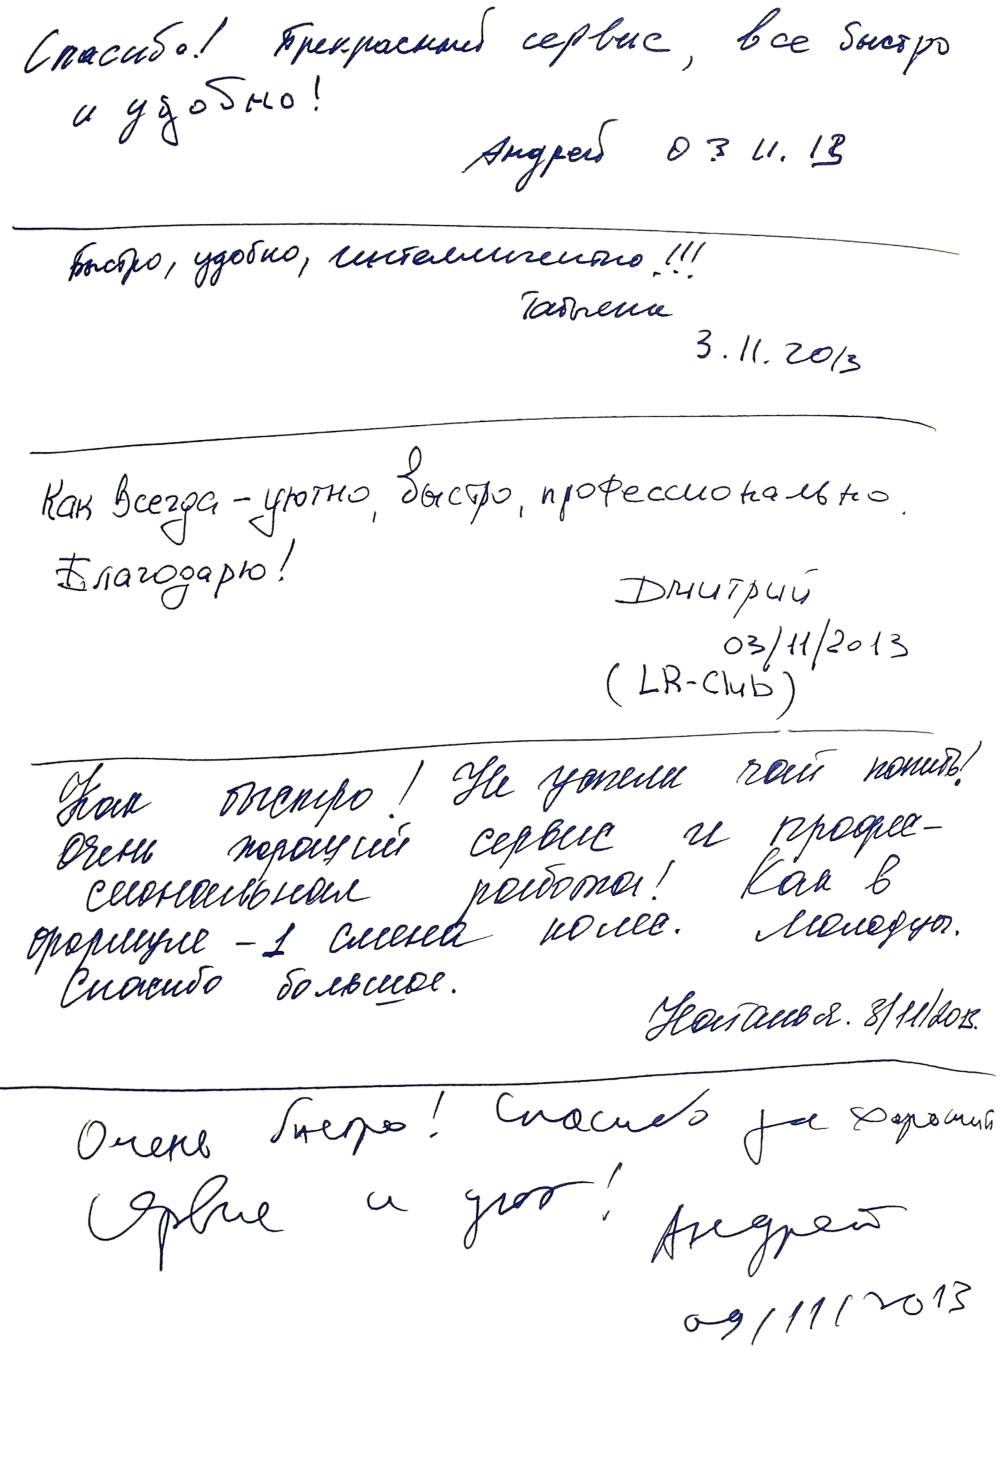 Спасибо! Прекрасный сервис, все быстро
и удобно!
Андрей 03 11. 13
Быстро, удобно, интеллигентно!!!
Татьяна
3.11.2013
Как всегда - уютно, быстро, профессионально.
Благодарю!
Дмитрий
03/11/2013
(LR-Club)
Как быстро! Не успели чай попить!
Очень хороший сервис и профес-
сиональная работа! Как в
формуле -1 смена колес. Молодцы.
Спасибо большое.
Наталья. 3/11/2013.
Очень быстро! Спасибо за хороший
сервис и уют!
Андрей
09/11/2013